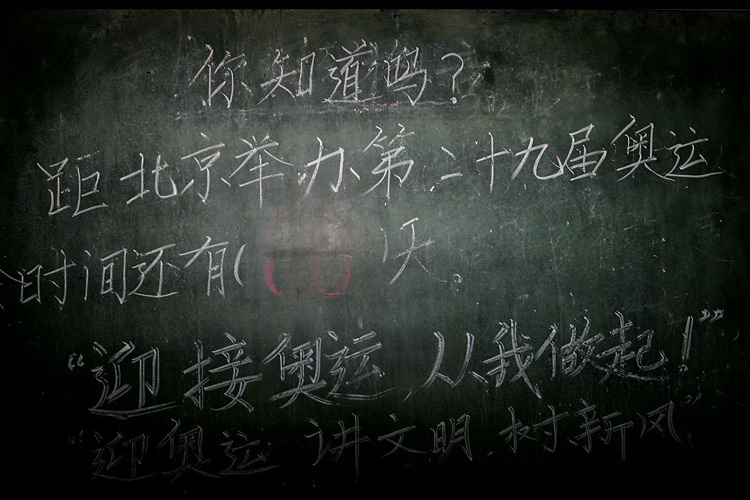 你知道吗？
距北京举办第二十九届奥运
会时间还有（ ）天。
“迎接奥运，从我做起！”
“迎奥运 讲文明 树新风”